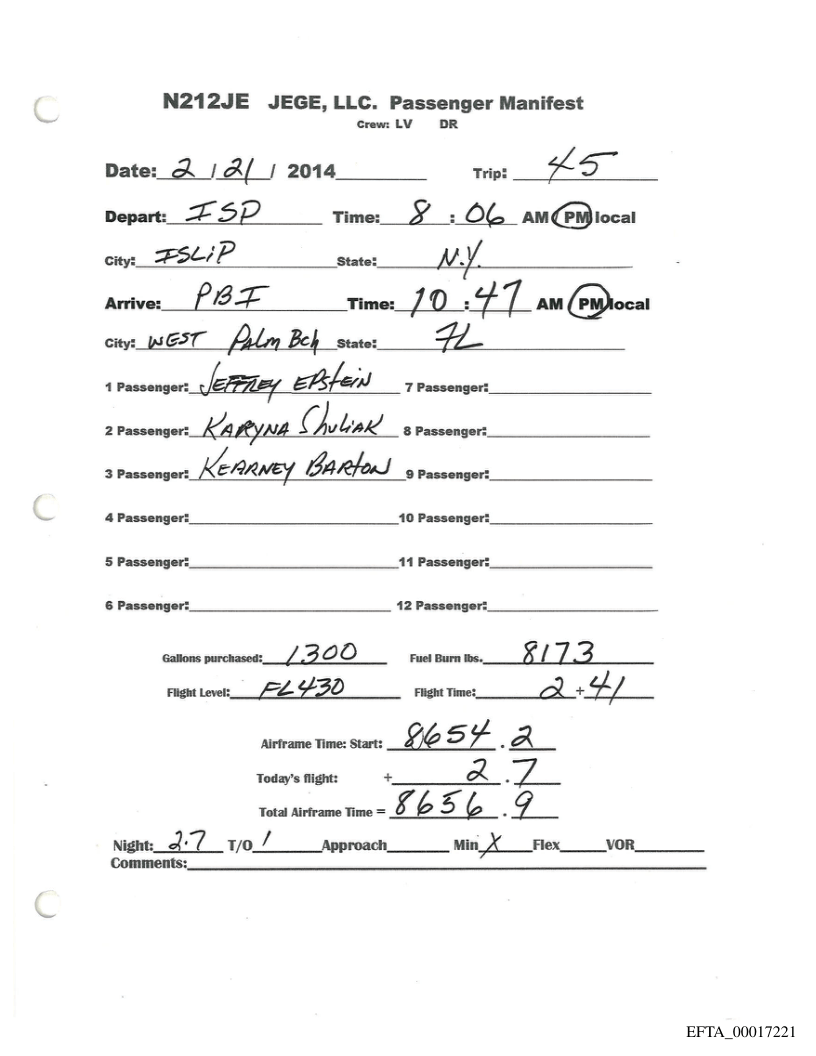 N212JE JEGE, LLC. Passenger Manifest
Crew: LV DR
Date: 2 / 21 / 2014 Trip: 45
Depart: ISP Time: 8 : 06 AM PM local
City: ISLIP State: N.Y.
Arrive: PBI Time: 10 : 47 AM PM local
City: WEST Palm Bch State: FL
1 Passenger: JEFFREY EPSTEIN 7 Passenger:
2 Passenger: KARYNA SHULIAK 8 Passenger:
3 Passenger: KEARNEY BARTON 9 Passenger:
4 Passenger: 10 Passenger:
5 Passenger: 11 Passenger:
6 Passenger: 12 Passenger:
Gallons purchased: 1300 Fuel Burn lbs. 8173
Flight Level: FL430 Flight Time: 2 + 41
Airframe Time: Start: 8654 . 2
Today's flight: + 2 . 7
Total Airframe Time = 8656 . 9
Night: 2.7 T/O 1 Approach Min X Flex VOR
Comments:
EFTA_00017221